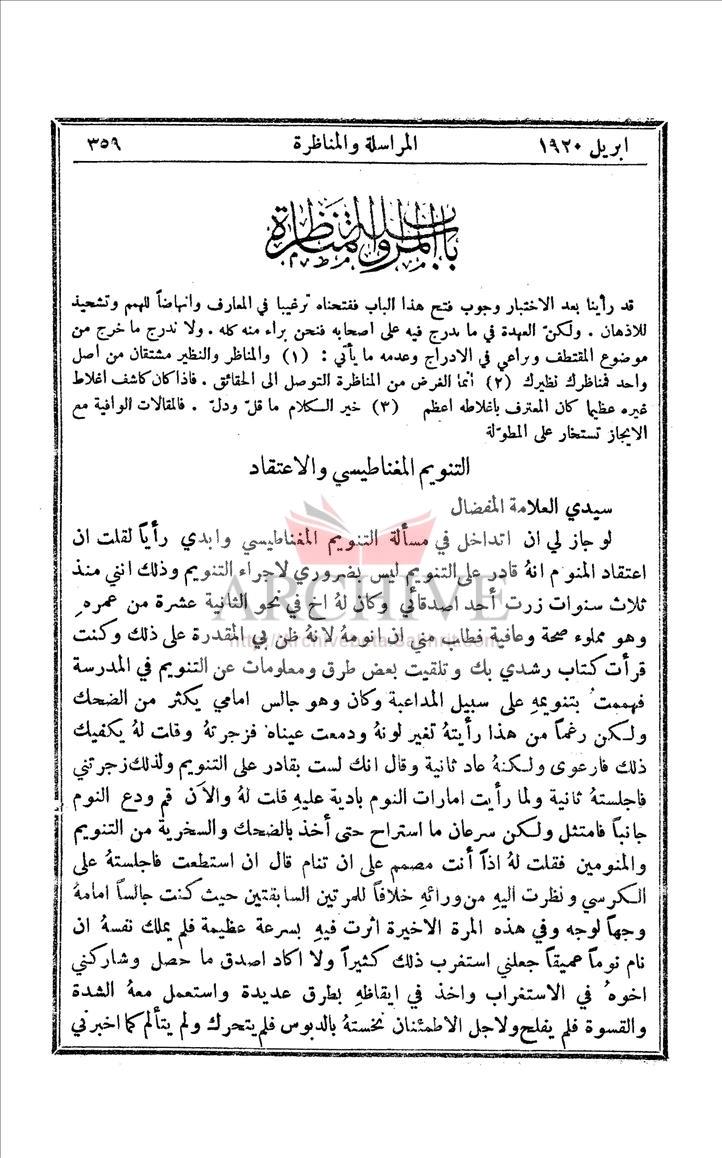 ابريل ١٩٢٠ المراسلة والمناظرة ٣٥٩
باب المراسلة والمناظرة
قد رأينا بعد الاختبار وجوب فتح هذا الباب ففتحناه ترغيبا في المعارف وانهاضاً للهمم وتشحيذ
للاذهان . ولكنّ العهدة في ما يدرج فيه على اصحابه فنحن براء منه كله . ولا ندرج ما خرج عن
موضوع المقتطف ونراعي في الادراج وعدمه ما يأتي : (١) والمناظر والنظير مشتقان من اصل
واحد فمناظرك نظيرك (٢) انما الغرض من المناظرة التوصل الى الحقائق . فاذا كان كاشف اغلاط
غيره عظيما كان المعترف باغلاطه اعظم (٣) خير الكلام ما قلّ ودلّ . فالمقالات الوافية مع
الايجاز تستخار على المطوّلة
التنويم المغناطيسي والاعتقاد
سيدي العلامة المفضال
لو جاز لي ان اتداخل في مسألة التنويم المغناطيسي وابدي رأياً لقلت ان
اعتقاد المنوم انهُ قادر على التنويم ليس بضروري لاجراء التنويم وذلك انني منذ
ثلاث سنوات زرت أحد اصدقائي وكان لهُ اخ في نحو الثانية عشرة من عمره ِ
وهو مملوء صحة وعافية فطلب مني ان انومهُ لانهُ ظن بي المقدرة على ذلك وكنت
قرأت كتاب رشدي بك وتلقيت بعض طرق ومعلومات عن التنويم في المدرسة
فهممت ُ بتنويمهِ على سبيل المداعبة وكان وهو جالس امامي يكثر من الضحك
ولكن رغماً من هذا رأيتهُ تغير لونهُ ودمعت عيناه فزجرتهُ وقلت لهُ يكفيك
ذلك فارعوى ولكنهُ عاد ثانية وقال انك لست بقادر على التنويم ولذلك زجرتني
فاجلستهُ ثانية ولما رأيت امارات النوم بادية عليهِ قلت لهُ والآن قم ودع النوم
جانباً فامتثل ولكن سرعان ما استراح حتى أخذ بالضحك والسخرية من التنويم
والمنومين فقلت لهُ اذاً أنت مصمم على ان تنام قال ان استطعت فاجلستهُ على
الكرسي ونظرت اليهِ من ورائهِ خلافاً للمرتين السابقتين حيث كنت جالساً امامهُ
وجهاً لوجه وفي هذه المرة الاخيرة اثرت فيهِ بسرعة عظيمة فلم يملك نفسهُ ان
نام نوماً عميقاً جعلني استغرب ذلك كثيراً ولا اكاد اصدق ما حصل وشاركني
اخوهُ في الاستغراب واخذ في ايقاظهِ بطرق عديدة واستعمل معهُ الشدة
والقسوة فلم يفلح ولاجل الاطمئنان نخستهُ بالدبوس فلم يتحرك ولم يتألم كما اخبرني
ARCHIVE